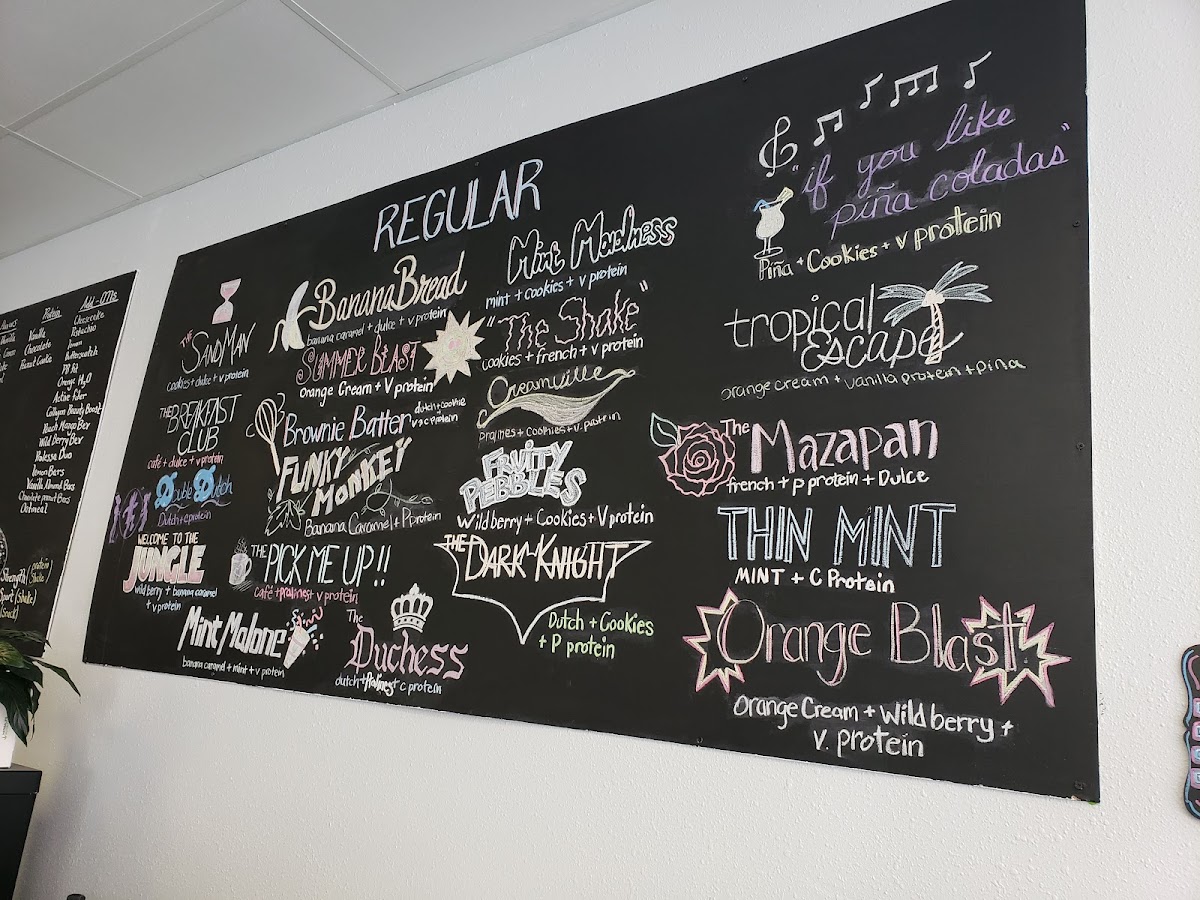 Protein
Vanilla
Chocolate
Peanut Butter
Add-ons
Cheesecake
Pistachio
Lemon
Butterscotch
PB Pot
Orange H2O
Active Fiber
Collagen Beauty Boost
Peach Mango Bev
Wild Berry Bev
Prolessa Duo
Lemon Bars
Vanilla Almond Bars
Chocolate Peanut Bars
Oatmeal
Strength (protein)
(Shake)
Sport (Shake)
(Snack)
REGULAR
The SANDMAN
cookies + dulce + v protein
THE BREAKFAST
CLUB
café + dulce + v protein
Double Dutch
Dutch + c protein
WELCOME TO THE
JUNGLE
wild berry + banana caramel
+ v protein
Mint Malone
banana caramel + mint + v protein
Banana Bread
banana caramel + dulce + v protein
SUMMER BLAST
Orange Cream + V protein
Brownie Batter
dutch + cookie
v + c protein
FUNKY
MONKEY
Banana Caramel + P protein
THE PICK ME UP!!
café + pralines + v protein
The
Duchess
dutch + Pralines + c protein
Mint Madness
mint + cookies + v protein
"The Shake"
cookies + french + v protein
Creamville
Pralines + Cookies + v. protein
FRUITY
PEBBLES
Wild berry + Cookies + V protein
THE DARK KNIGHT
Dutch + Cookies
+ P protein
"if you like
piña coladas"
Piña + Cookies + v protein
tropical
Escape
orange cream + vanilla protein + piña
The Mazapan
french + p protein + Dulce
THIN MINT
MINT + C Protein
Orange Blast
Orange Cream + Wild berry +
v. protein